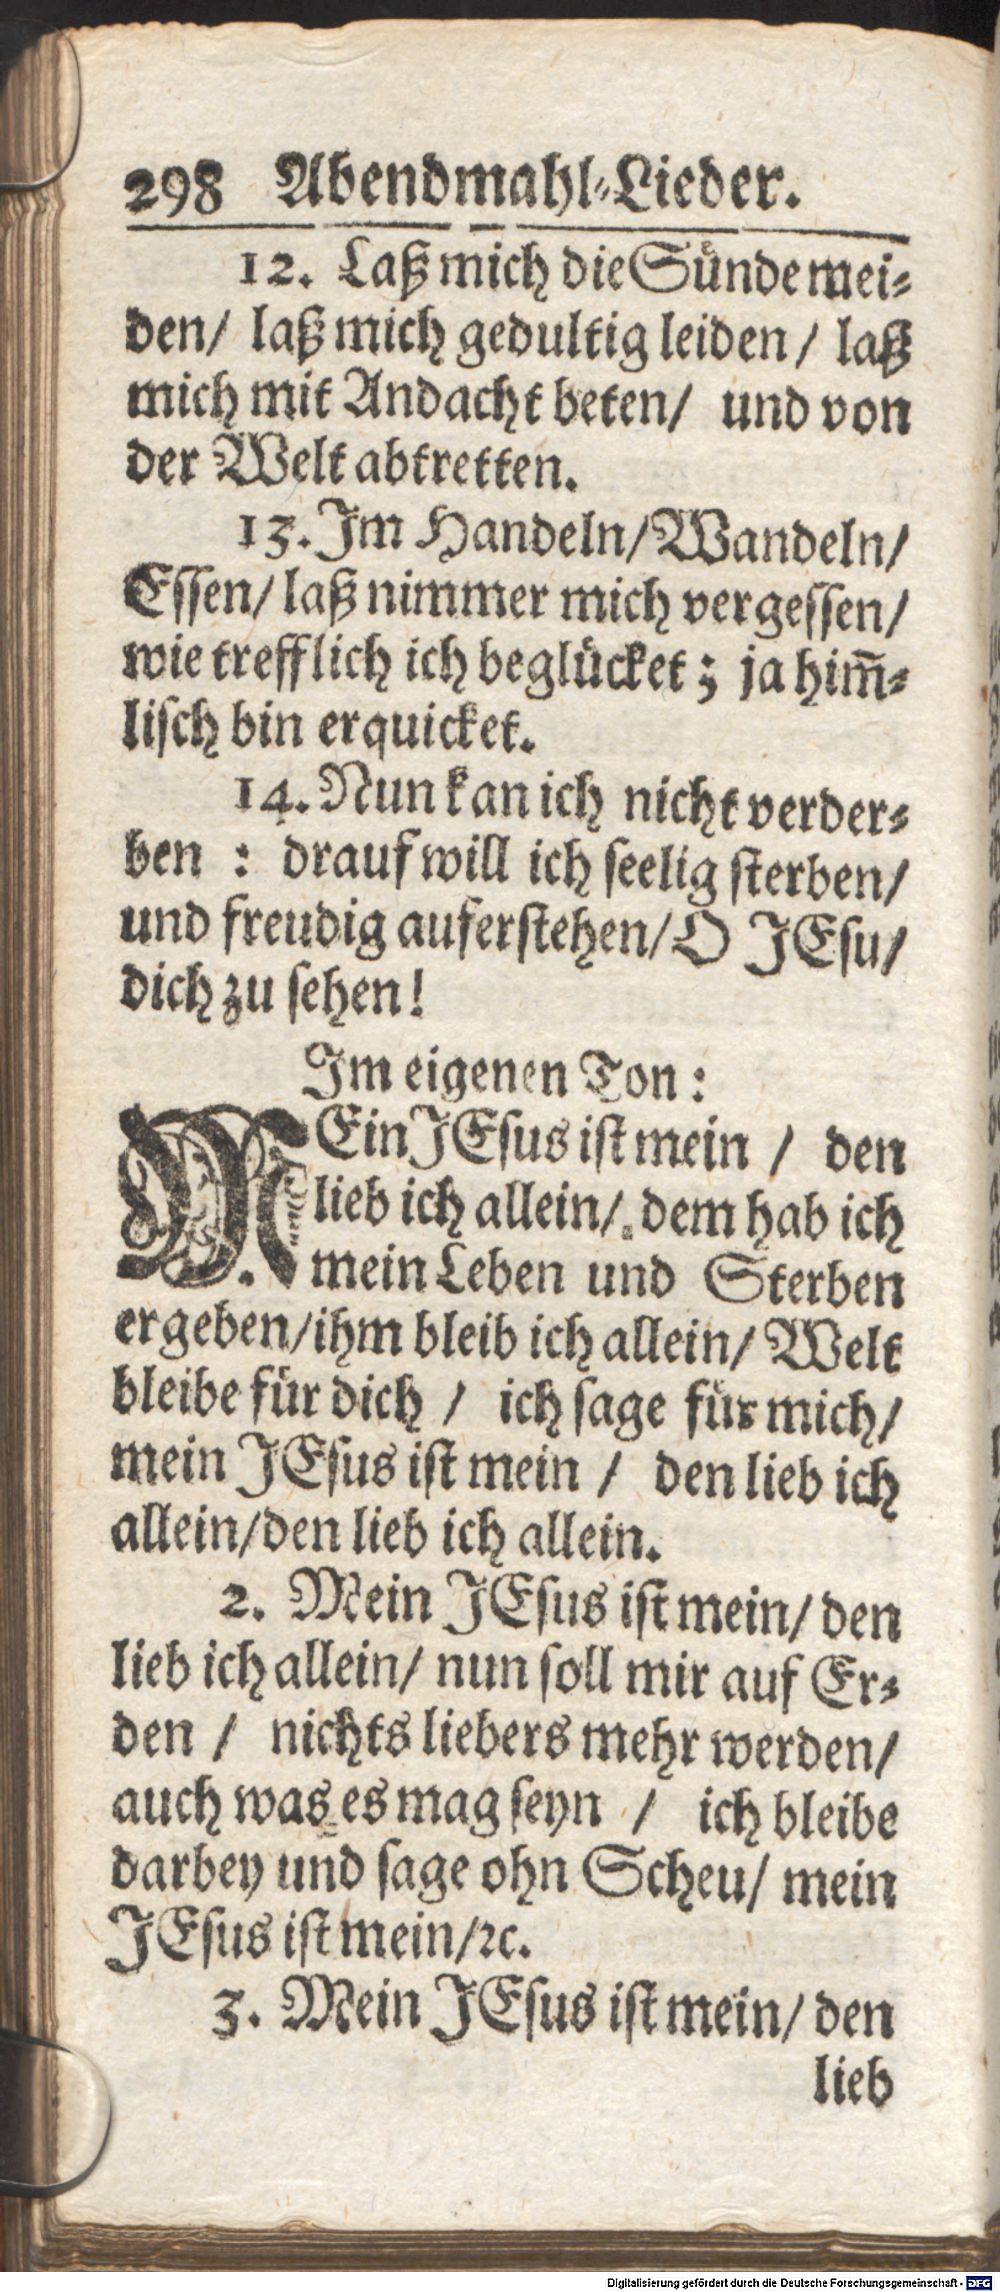 298 Abendmahl-Lieder.
12. Laß mich die Sünde mei-
den/ laß mich gedultig leiden/ laß
mich mit Andacht beten/ und von
der Welt abtretten.
13. Im Handeln/ Wandeln/
Essen/ laß nimmer mich vergessen/
wie trefflich ich beglücket; ja him̃-
lisch bin erquicket.
14. Nun kan ich nicht verder-
ben : drauf will ich seelig sterben/
und freudig auferstehen/ O JEsu/
dich zu sehen!
Im eigenen Ton:
MEin JEsus ist mein / den
lieb ich allein/ dem hab ich
mein Leben und Sterben
ergeben/ ihm bleib ich allein/ Welt
bleibe für dich / ich sage für mich/
mein JEsus ist mein / den lieb ich
allein/ den lieb ich allein.
2. Mein JEsus ist mein/ den
lieb ich allein/ nun soll mir auf Er-
den / nichts liebers mehr werden/
auch was es mag seyn / ich bleibe
darbey und sage ohn Scheu/ mein
JEsus ist mein/ ꝛc.
3. Mein JEsus ist mein/ den
lieb
Digitalisierung gefördert durch die Deutsche Forschungsgemeinschaft - DFG